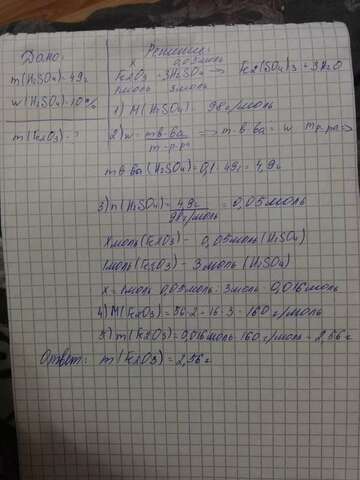 Дано:
m(H2SO4)=49г
w(H2SO4)=10%
m(Fe2O3)-?
Решение:
x 0,05моль
Fe2O3+3H2SO4 → Fe2(SO4)3+3H2O
1моль 3моль
1) M(H2SO4)=98г/моль
2) w=mв-ва/mр-ра => mв-ва=w·mр-ра =>
mв-ва(H2SO4)=0,1·49г=4,9г
3) n(H2SO4)=4,9г/98г/моль=0,05моль
Xмоль(Fe2O3)- 0,05моль(H2SO4)
1моль(Fe2O3)-3моль(H2SO4)
x=1моль·0,05моль:3моль=0,016моль
4) M(Fe2O3)=56·2+16·3=160г/моль
5) m(Fe2O3)=0,016моль·160г/моль=2,56г
Ответ: m(Fe2O3)=2,56г